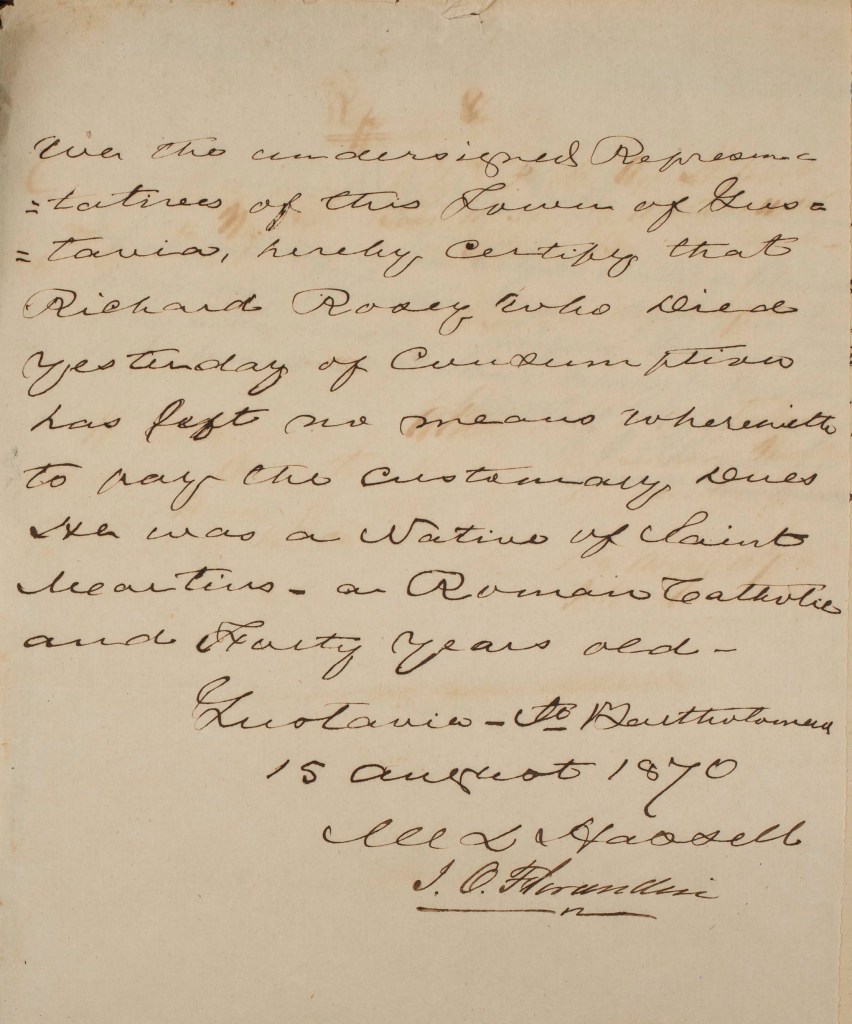 Wee the undersigned Represen=
=tatives of this Town of Gus=
=tavia, hereby Certify that
Richard Rosey who Died
Yesterday of Consumption
has left no means wherewith
to pay the customary Dues
He was a Native of Saint
Martins - a Roman Catholic
and Forty Years old -
Gustavia - St Bartholomew
15 august 1870
L Hassell
J. O. Florandin